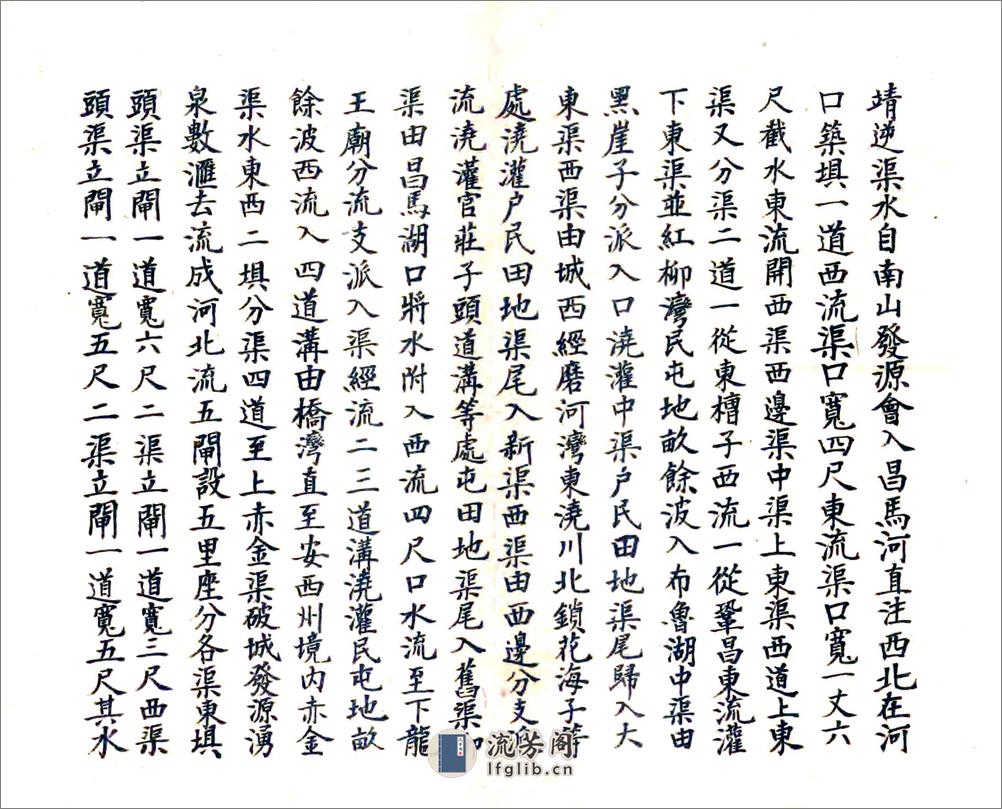 靖逆渠水自南山發源會入昌馬河直注西北在河
口築埧一道西流渠口寬四尺東流渠口寬一丈六
尺截水東流開西渠西邊渠中渠上東渠西道上東
渠又分渠二道一從東槽子西流一從鞏昌東流灌
下東渠並紅柳灣民屯地畝餘波入布魯湖中渠由
黑崖子分派入口澆灌中渠户民田地渠尾歸入大
東渠西渠由城西經磨河灣東澆川北鎖花海子等
處澆灌户民田地渠尾入新渠西渠由西邊分支派
流澆灌官莊子頭道溝等處屯田地渠尾入舊渠
渠由昌馬湖口將水附入西流四尺口水流至下龍
王廟分流支派入渠經流二三道溝澆灌民屯地畝
餘波西流入四道溝由橋灣直至安西州境内赤金
渠水東西二埧分渠四道至上赤金渠破城發源湧
泉數滙去流成河北流五閘設五里座分各渠東埧
頭渠立閘一道寬六尺二渠立閘一道寬三尺西渠
頭渠立閘一道寬五尺二渠立閘一道寬五尺其水
流芳阁
lfglib.cn